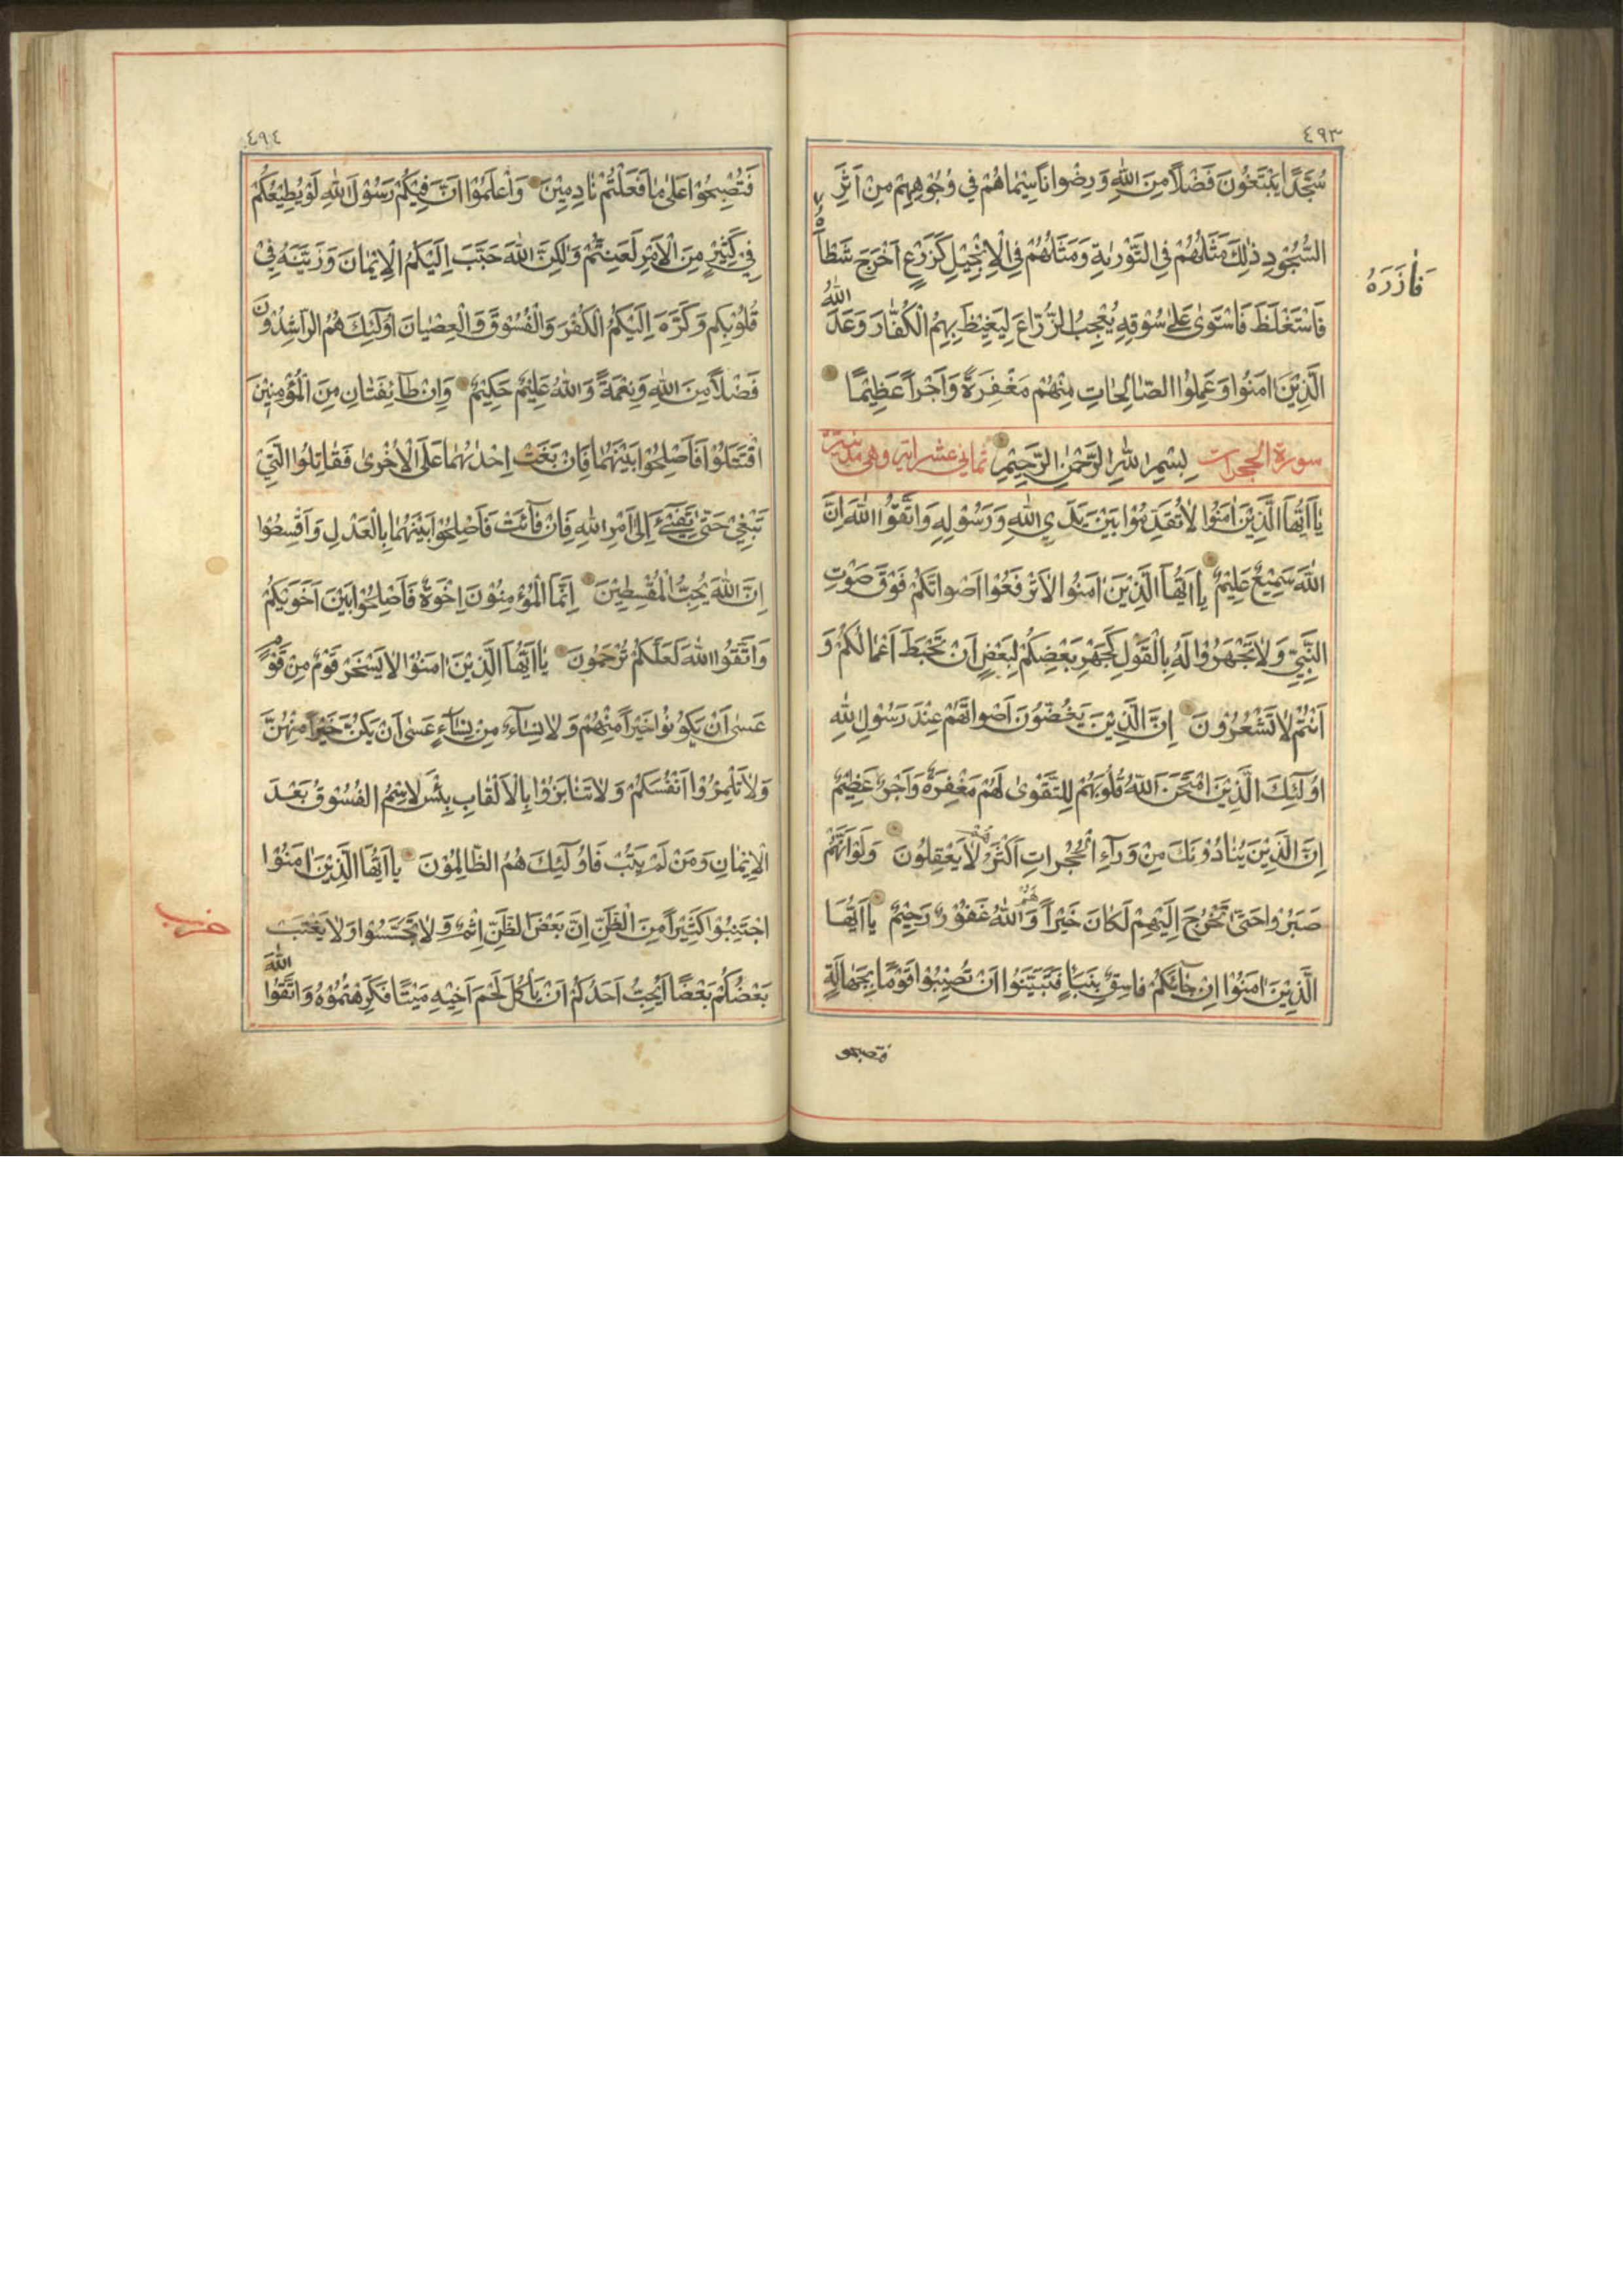 ٤٩٣
سُجَّدًا يَبْتَغُونَ فَضْلًا مِنَ اللّٰهِ وَرِضْوانًا سِيْمٰاهُمْ فِي وُجُوْهِهِمْ مِنْ اَثَرِ
السُّجُوْدِ ذٰلِكَ مَثَلُهُمْ فِي التَّوْرٰيةِ وَمَثَلُهُمْ فِي الْاِنْجِيْلِ كَزَرْعٍ اَخْرَجَ شَطْأَهُ
فَاٰزَرَهُ
فَاسْتَغْلَظَ فَاسْتَوٰى عَلٰى سُوْقِهِ يُعْجِبُ الزُّرّٰاعَ لِيَغِيْظَ بِهِمُ الْكُفّٰارَ وَعَدَ اللّٰهُ
الَّذِيْنَ اٰمَنُوا وَعَمِلُوا الصّٰالِحٰاتِ مِنْهُمْ مَغْفِرَةً وَاَجْراً عَظِيْمًا
سورة الحجرات بِسْمِ اللّٰهِ الرَّحْمٰنِ الرَّحِيْمِ ثماني عشر اية وهي مدنية
يٰا اَيُّهَا الَّذِيْنَ اٰمَنُوا لاٰتُقَدِّمُوْا بَيْنَ يَدَيِ اللّٰهِ وَرَسُوْلِهِ وَاتَّقُوا اللّٰهَ اِنَّ
اللّٰهَ سَمِيْعٌ عَلِيْمٌ يٰا اَيُّهَا الَّذِيْنَ اٰمَنُوا لاٰ تَرْفَعُوْا اَصْواتَكُمْ فَوْقَ صَوْتِ
النَّبِيِّ وَلاٰ تَجْهَرُوْا لَهُ بِالْقَوْلِ كَجَهْرِ بَعْضِكُمْ لِبَعْضٍ اَنْ تَحْبَطَ اَعْمٰالُكُمْ وَ
اَنْتُمْ لاٰ تَشْعُرُوْنَ اِنَّ الَّذِيْنَ يَغُضُّوْنَ اَصْواتَهُمْ عِنْدَ رَسُوْلِ اللّٰهِ
اُولٰئِكَ الَّذِيْنَ امْتَحَنَ اللّٰهُ قُلُوْبَهُمْ لِلتَّقْوٰى لَهُمْ مَغْفِرَةٌ وَاَجْرٌ عَظِيْمٌ
اِنَّ الَّذِيْنَ يُنٰادُوْنَكَ مِنْ وَرٰاءِ الْحُجُراتِ اَكْثَرُهُمْ لاٰ يَعْقِلُوْنَ وَلَوْ اَنَّهُمْ
صَبَرُوْا حَتّٰى تَخْرُجَ اِلَيْهِمْ لَكٰانَ خَيْراً لَهُمْ وَاللّٰهُ غَفُوْرٌ رَحِيْمٌ يٰا اَيُّهَا
الَّذِيْنَ اٰمَنُوْا اِنْ جٰائَكُمْ فٰاسِقٌ بِنَبَأٍ فَتَبَيَّنُوا اَنْ تُصِيْبُوْا قَوْمًا بِجَهٰالَةٍ
فتصبحوا
٤٩٤
فَتُصْبِحُوْا عَلٰى مٰا فَعَلْتُمْ نٰادِمِيْنَ وَاعْلَمُوْا اَنَّ فِيْكُمْ رَسُوْلَ اللّٰهِ لَوْ يُطِيْعُكُمْ
فِيْ كَثِيْرٍ مِنَ الْاَمْرِ لَعَنِتُّمْ وَلٰكِنَّ اللّٰهَ حَبَّبَ اِلَيْكُمُ الْاِيْمٰانَ وَزَيَّنَهُ فِيْ
قُلُوْبِكُمْ وَكَرَّهَ اِلَيْكُمُ الْكُفْرَ وَالْفُسُوْقَ وَالْعِصْيٰانَ اُولٰئِكَ هُمُ الرّاشِدُوْنَ
فَضْلًا مِنَ اللّٰهِ وَنِعْمَةً وَاللّٰهُ عَلِيْمٌ حَكِيْمٌ وَاِنْ طٰائِفَتٰانِ مِنَ الْمُؤْمِنِيْنَ
اقْتَتَلُوْا فَاَصْلِحُوْا بَيْنَهُمٰا فَاِنْ بَغَتْ اِحْدٰيهُمٰا عَلَى الْاُخْرٰى فَقٰاتِلُوا الَّتِيْ
تَبْغِيْ حَتّٰى تَفِيْءَ اِلٰى اَمْرِ اللّٰهِ فَاِنْ فٰائَتْ فَاَصْلِحُوْا بَيْنَهُمٰا بِالْعَدْلِ وَاَقْسِطُوا
اِنَّ اللّٰهَ يُحِبُّ الْمُقْسِطِيْنَ اِنَّمَا الْمُؤْمِنُوْنَ اِخْوَةٌ فَاَصْلِحُوْا بَيْنَ اَخَوَيْكُمْ
وَاتَّقُوا اللّٰهَ لَعَلَّكُمْ تُرْحَمُوْنَ يٰا اَيُّهَا الَّذِيْنَ اٰمَنُوْا لاٰ يَسْخَرْ قَوْمٌ مِنْ قَوْمٍ
عَسٰى اَنْ يَكُوْنُوْا خَيْراً مِنْهُمْ وَلاٰ نِسٰاءٌ مِنْ نِسٰاءٍ عَسٰى اَنْ يَكُنَّ خَيْراً مِنْهُنَّ
وَلاٰ تَلْمِزُوْا اَنْفُسَكُمْ وَلاٰ تَنٰابَزُوْا بِالْاَلْقٰابِ بِئْسَ الاِسْمُ الْفُسُوْقُ بَعْدَ
الْاِيْمٰانِ وَمَنْ لَمْ يَتُبْ فَاُولٰئِكَ هُمُ الظّٰالِمُوْنَ يٰا اَيُّهَا الَّذِيْنَ اٰمَنُوْا
اجْتَنِبُوْا كَثِيْراً مِنَ الظَّنِّ اِنَّ بَعْضَ الظَّنِّ اِثْمٌ وَلاٰ تَجَسَّسُوْا وَلاٰ يَغْتَبْ
حزب
بَعْضُكُمْ بَعْضًا اَيُحِبُّ اَحَدُكُمْ اَنْ يَأْكُلَ لَحْمَ اَخِيْهِ مَيْتًا فَكَرِهْتُمُوْهُ وَاتَّقُوا اللّٰهَ